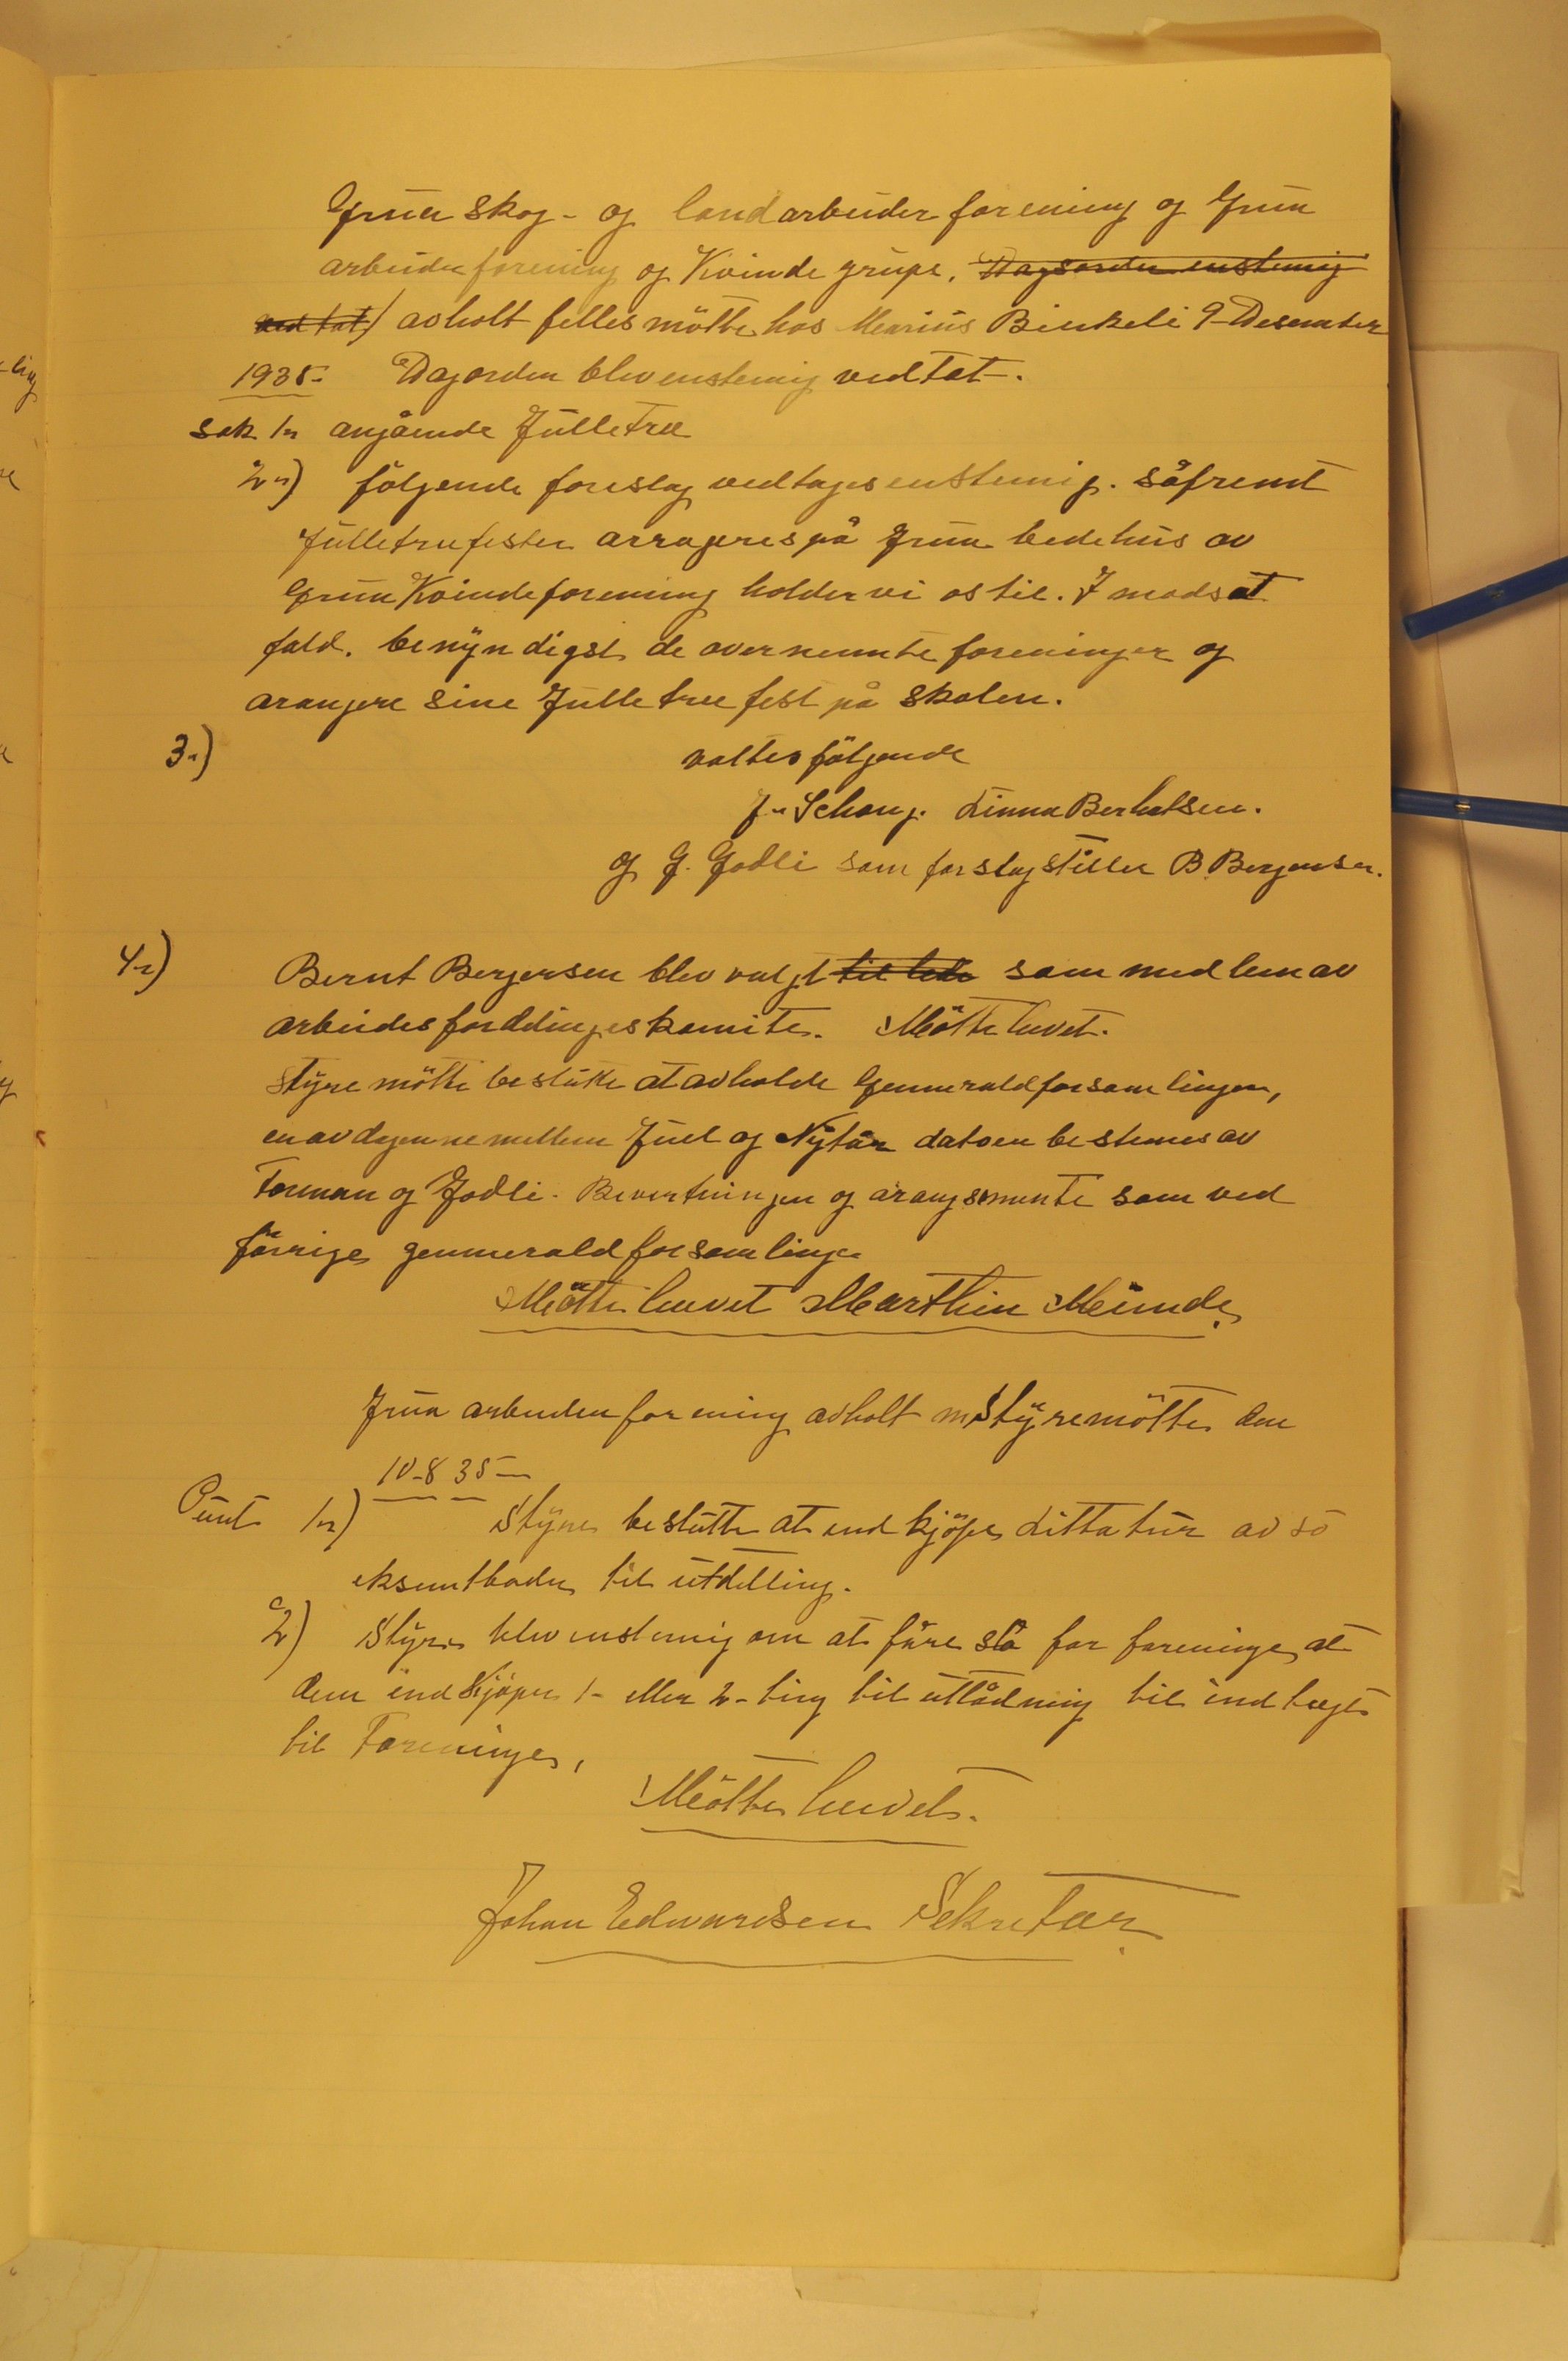 Grua skog- og landarbeider forening og Grua
arbeider forening og Kvinde grupe. Dagsorden enstemig
vedtat) avholt felles mötte hos Marius Binkeli 9-Desember
1935- Dagorden blev enstemig vedtat.
sak 1- angående Julletree
2-) fölgende foreslag vedtages enstemig. såfremt
Julletrefesten arrageres på Grua bedehus av
Grua Kvindeforening holder vi os til. I modsat
fald. benyndiges de overnemnte foreninger og
arangere sine Julletree fest på skolen.
3-) valtes fölgende
J. Schou. Linna Berhatsen.
og G. Godli som forslagstiller B. Bergersen.
4-) Bernt Bergersen blev valgt til lede som medlem av
arbeidesfordelingeskomite. Mötte hevet.
Styremötte beslutte at avholde Gennerald forsamlingen,
en av dagenne mellem Juel og Nytår datoen bestemes av
Forman og Godli. Bevertningen og arangsmente som ved
förrige gennerald forsamling.
Mötte heevet Marthin Meunde,
Grua arbeiderforening avholt m Styremötte den
10-8 35-
Punt 1-) Styre beslutte at indkjöpe Littatur av 50
eksemtbader til utdelling.
2) Styre blev enstemig om at före slå for foreninge, at
dem indkjöper 1- eller 2- ting til utlådning til indtægt
til Foreninge,
Mötte heevet.
Johan Edwardsen Sekretær